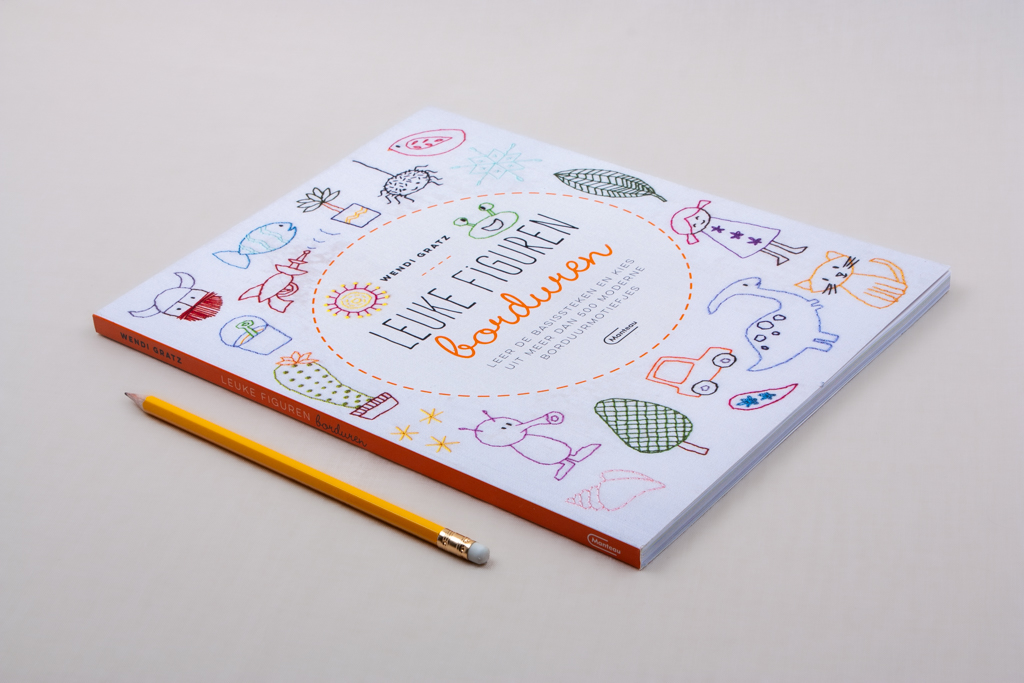 WENDI GRATZ
LEUKE FiGUREN
borduren
LEER DE BASISSTEKEN EN KIES
UIT MEER DAN 500 MODERNE
BORDUURMOTIEFJES
Manteau
WENDI GRATZ LEUKE FIGUREN borduren Manteau